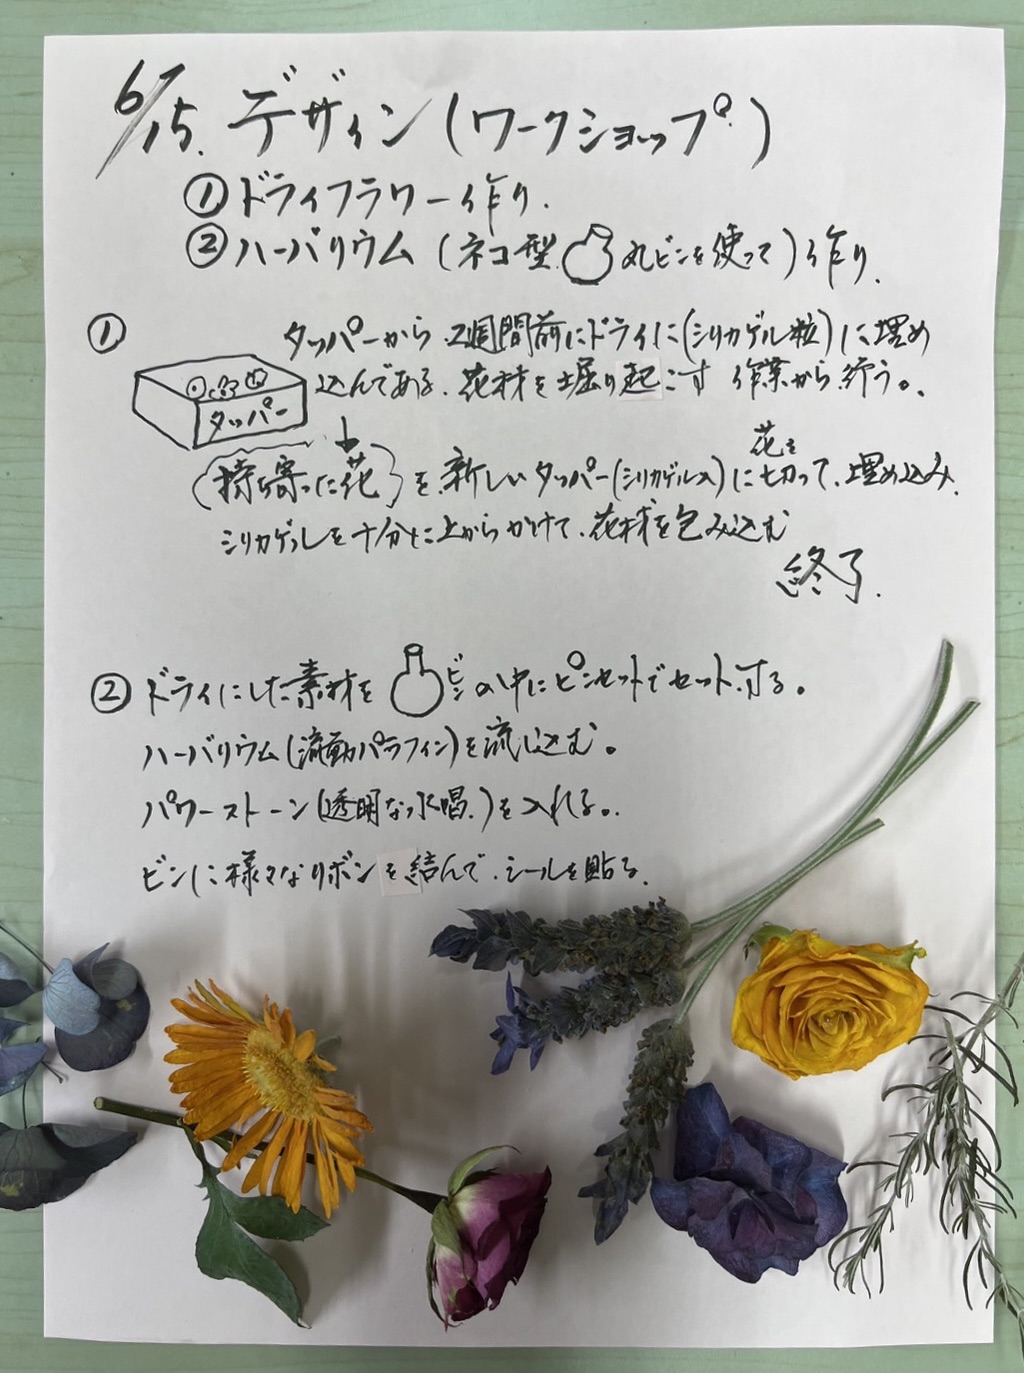 6/15. デザイン(ワークショップ)
①ドライフラワー作り.
②ハーバリウム(ネコ型.丸ビンを使って)作り.
① タッパーから.2週間前にドライに(シリカゲル粒)に埋め
込んである.花材を堀り起こす 作業から行う。
タッパー
花を
(持ち寄った花)を.新しいタッパー(シリカゲル入)に切って.埋め込み.
シリカゲルを十分に上からかけて.花材を包み込む
終了.
②ドライにした素材をビンの中にピンセットでセットする。
ハーバリウム(流動パラフィン)を流し込む。
パワーストーン(透明な水唱.)を入れる。.
ビンに様々なリボンを結んで.シールを貼る.